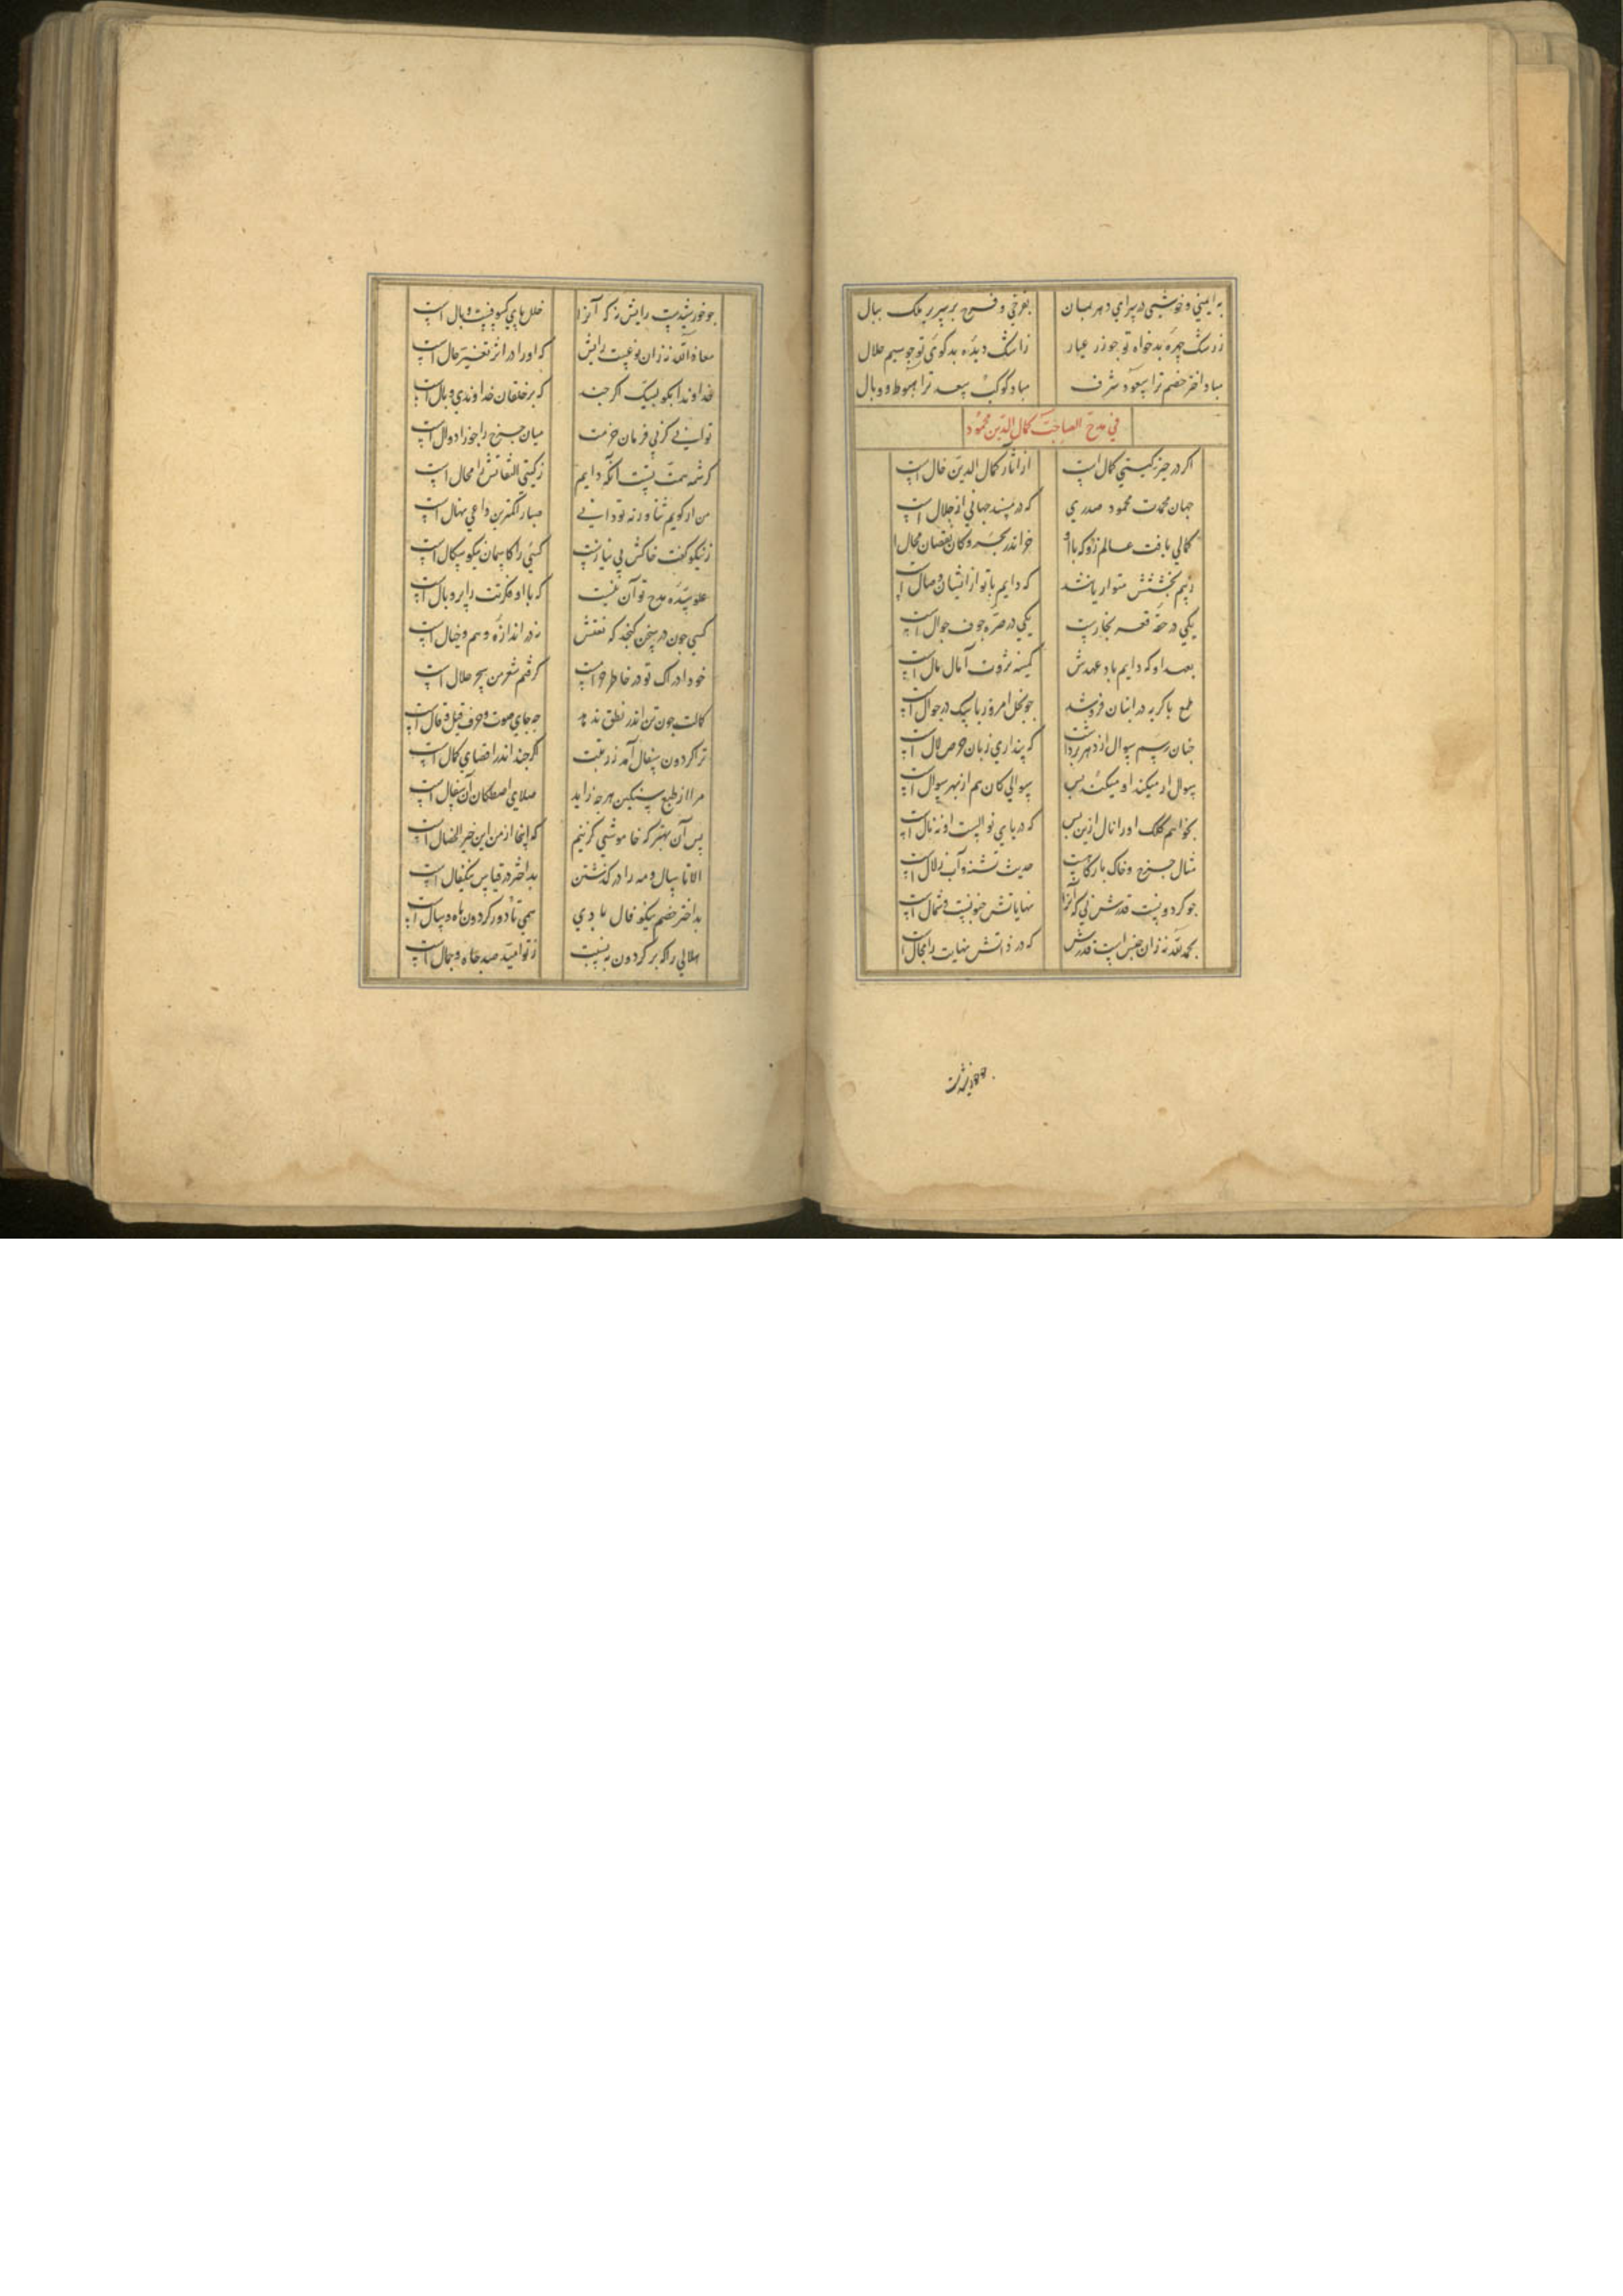 به ایمنی و خوشی در سرای دهر بمان بفرخی و فرح بر سریر ملک ببال
ز رشک چهره بدخواه تو چو زر عیار ز اشک دیده بدگوی تو چو سیم حلال
مباد اختر خصم ترا سعود شرف مباد کوکب سعد ترا هبوط و وبال
فی مدح الصاحب کمال الدین محمود
اگر در حیز گیتی کمال است از آثار کمال الدین خال است
جهان محمدت محمود صدری که در مسند جهانی از جلال است
کمالی یافت عالم زو که با او خود اندر بحر و کان نقصان محال
ز بیم بخششش متواریانند که دایم با تو از ایشان وصال است
یکی در حقه قعر بحارست یکی در صره جوف جبال است
بعهد او که دایم باد عهدش کمینه ثروت آمال مال است
طمع با گربه در انبان فروشد چو بخل امروز با سگ در جوال است
چنان رسم سوال از دهر برداشت که پنداری زبان حرص لال است
سوال ار میکند او میکند بس سوالی کان هم از بهر سوال است
نخواهم کلک او را نال ازین پس که دریای نوالست او نه نال است
مثال چرخ و خاک بارگاهت حدیث تشنه و آب زلال است
چو گردونست قدرش نی که آنرا نهایاتش جنوبست و شمال است
بحمد الله نه زان جنس است قدرش که در ذاتش نهایت را مجال
چو خورشیدست رایش نه که آنرا خلل های کسوفست و وبال است
معاذ الله نه زان نوعست رایش که او را در اثر تغییر حال است
خداوندا نگویم لیک هر چند که بر خلقان خداوندی وبال است
توانی کز پی فرمان حزمت میان چرخ را جوزا دوال است
کرشمه همت تست آنکه دایم ز گیتی التفاتش را محال است
من ار گویم ثنا ورنه تو دانی صبا را کمترین داعی نهال است
ز نیکو گفت خاکش بی نیازست کسی را کاسمان نیکو سگال است
علو سدره مدح تو آن نیست که با او فکرتت را پر و بال است
کسی چون در سخن گنجد که نعتش نه در اندازه وهم و خیال است
خود ادراک تو در خاطر حرامست گرفتم شعر من سحر حلال است
کمالت چون تن اندر نطق ندهد چه جای صوت و حرف قیل و قال است
ترا گردون سفال آمد ز رتبت اگر چند اندر اقصای کمال است
مرا از طبع سنگین هرچه زاید صلای اصطکاک آن سفال است
پس آن بهتر که خاموشی گزینم که اینجا از من این خیر الخصال است
الا تا سال و مه را در گذشتن بد اختر در قیاس نیکفال است
بد اختر خصم نیکو فال بادی همی تا دور گردون ماه و سال است
هلالی را که بر گردون نسبت ز تو امید صد جاه و جمال است